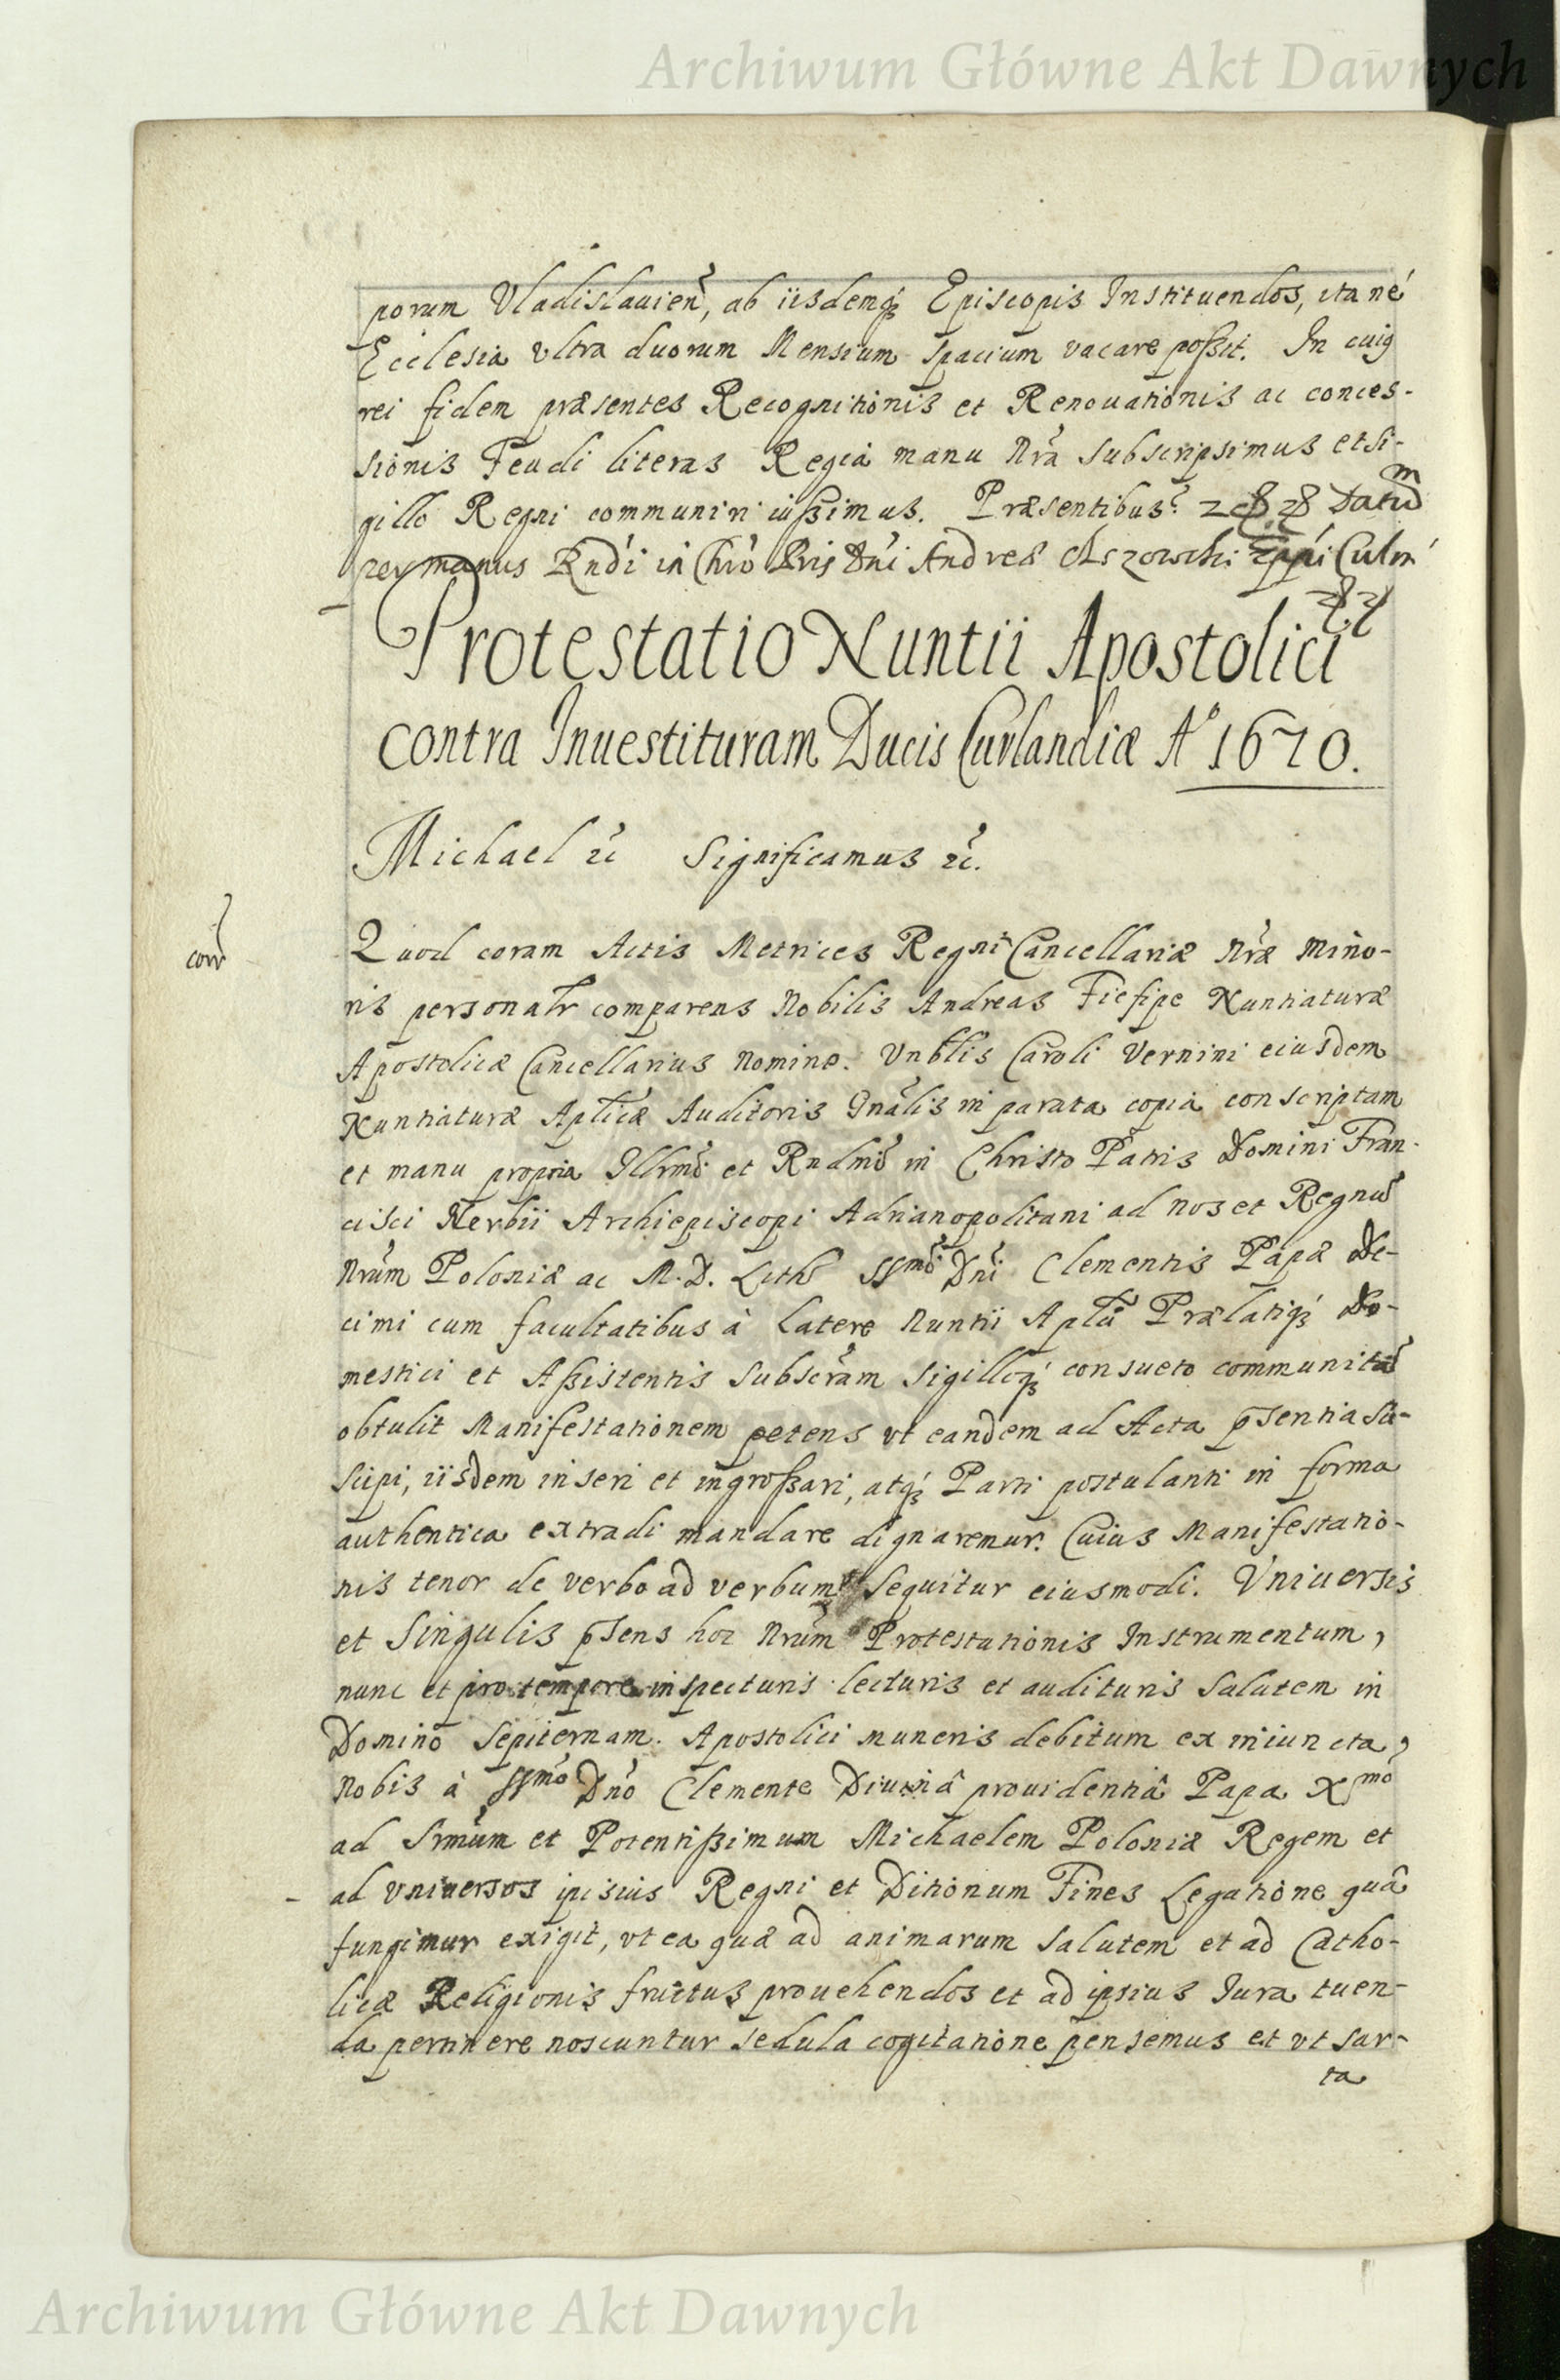 Archiwum Główne Akt Dawnych
porum Vladislavien̄, ab iisdemq́ꝫ Episcopis Instituendos, ita né
Ecclesia ultra duorum Mensium spacium vacare poßit. In cuiꝯ
rei fidem præsentes Recognitionis et Renovationis ac conces-
sionis Feudi literas Regiâ manu nrā subscripsimus et si-
gillo Regni communiri iußimus. Præsentibus Datum
per manus Rndi in Chro Pris Dni Andreæ Olszowski Eppi Culm
Protestatio Nuntii Apostolici
contra Inuestituram Ducis Curlandiæ Aº 1670.
Michael ꝛc Significamus ꝛc.
Quod coram Actis Metrices Regni Cancellariæ nræ Mino-
ris personalr comparens Nobilis Andreas Fiesipe Nuntiaturæ
Apostolicæ Cancellarius nomine Vnblis Caroli Vernini eiusdem
Nuntiaturæ Aplicæ Auditoris Gnalis in parata copia conscriptam
et manu propria Illrmi et Rndmi in Christo Patris Domini Fran-
cisci Nerbii Archiepiscopi Adrianopolitani ad nos et Regnū
Nrūm Poloniæ ac M.D. Lith ssmi Dni Clementis Papæ De-
cimi cum facultatibus à Latere Nuntii Aplci Prælatiq́ꝫ Do-
mestici et Aßistentis subscram sigilloq́ꝫ consueto communitā
obtulit Manifestationem petens vt eandem ad Acta p̄sentia su-
scipi, iisdem inseri et ingroßari, atq́ꝫ Parti postulanti in forma
authentica extradi mandare dignaremur. Cuius Manifestatio-
nis tenor de verbo ad verbum sequitur eiusmodi. Vniuersis
et Singulis p̄sens hoc nrum Protestationis Instrumentum,
nunc et pro tempore inspecturis lecturis et audituris salutem in
Domino Sepiternam. Apostolici muneris debitum ex iniuncta,
nobis à ssmo Dno Clemente Diuinâ prouidentiâ Papa Xmo
ad Srmum et Potentißimum Michaelem Poloniæ Regem et
ad vniuersos ipsius Regni et Ditionum Fines Legatione quâ
fungimur exigit, vt ea quæ ad animarum salutem et ad Catho-
licæ Religionis fructus prouehendos et ad ipsius Iura tuen-
da pertinere noscuntur sedula cogitatione pensemus et vt sar-
ta
Archiwum Główne Akt Dawnych